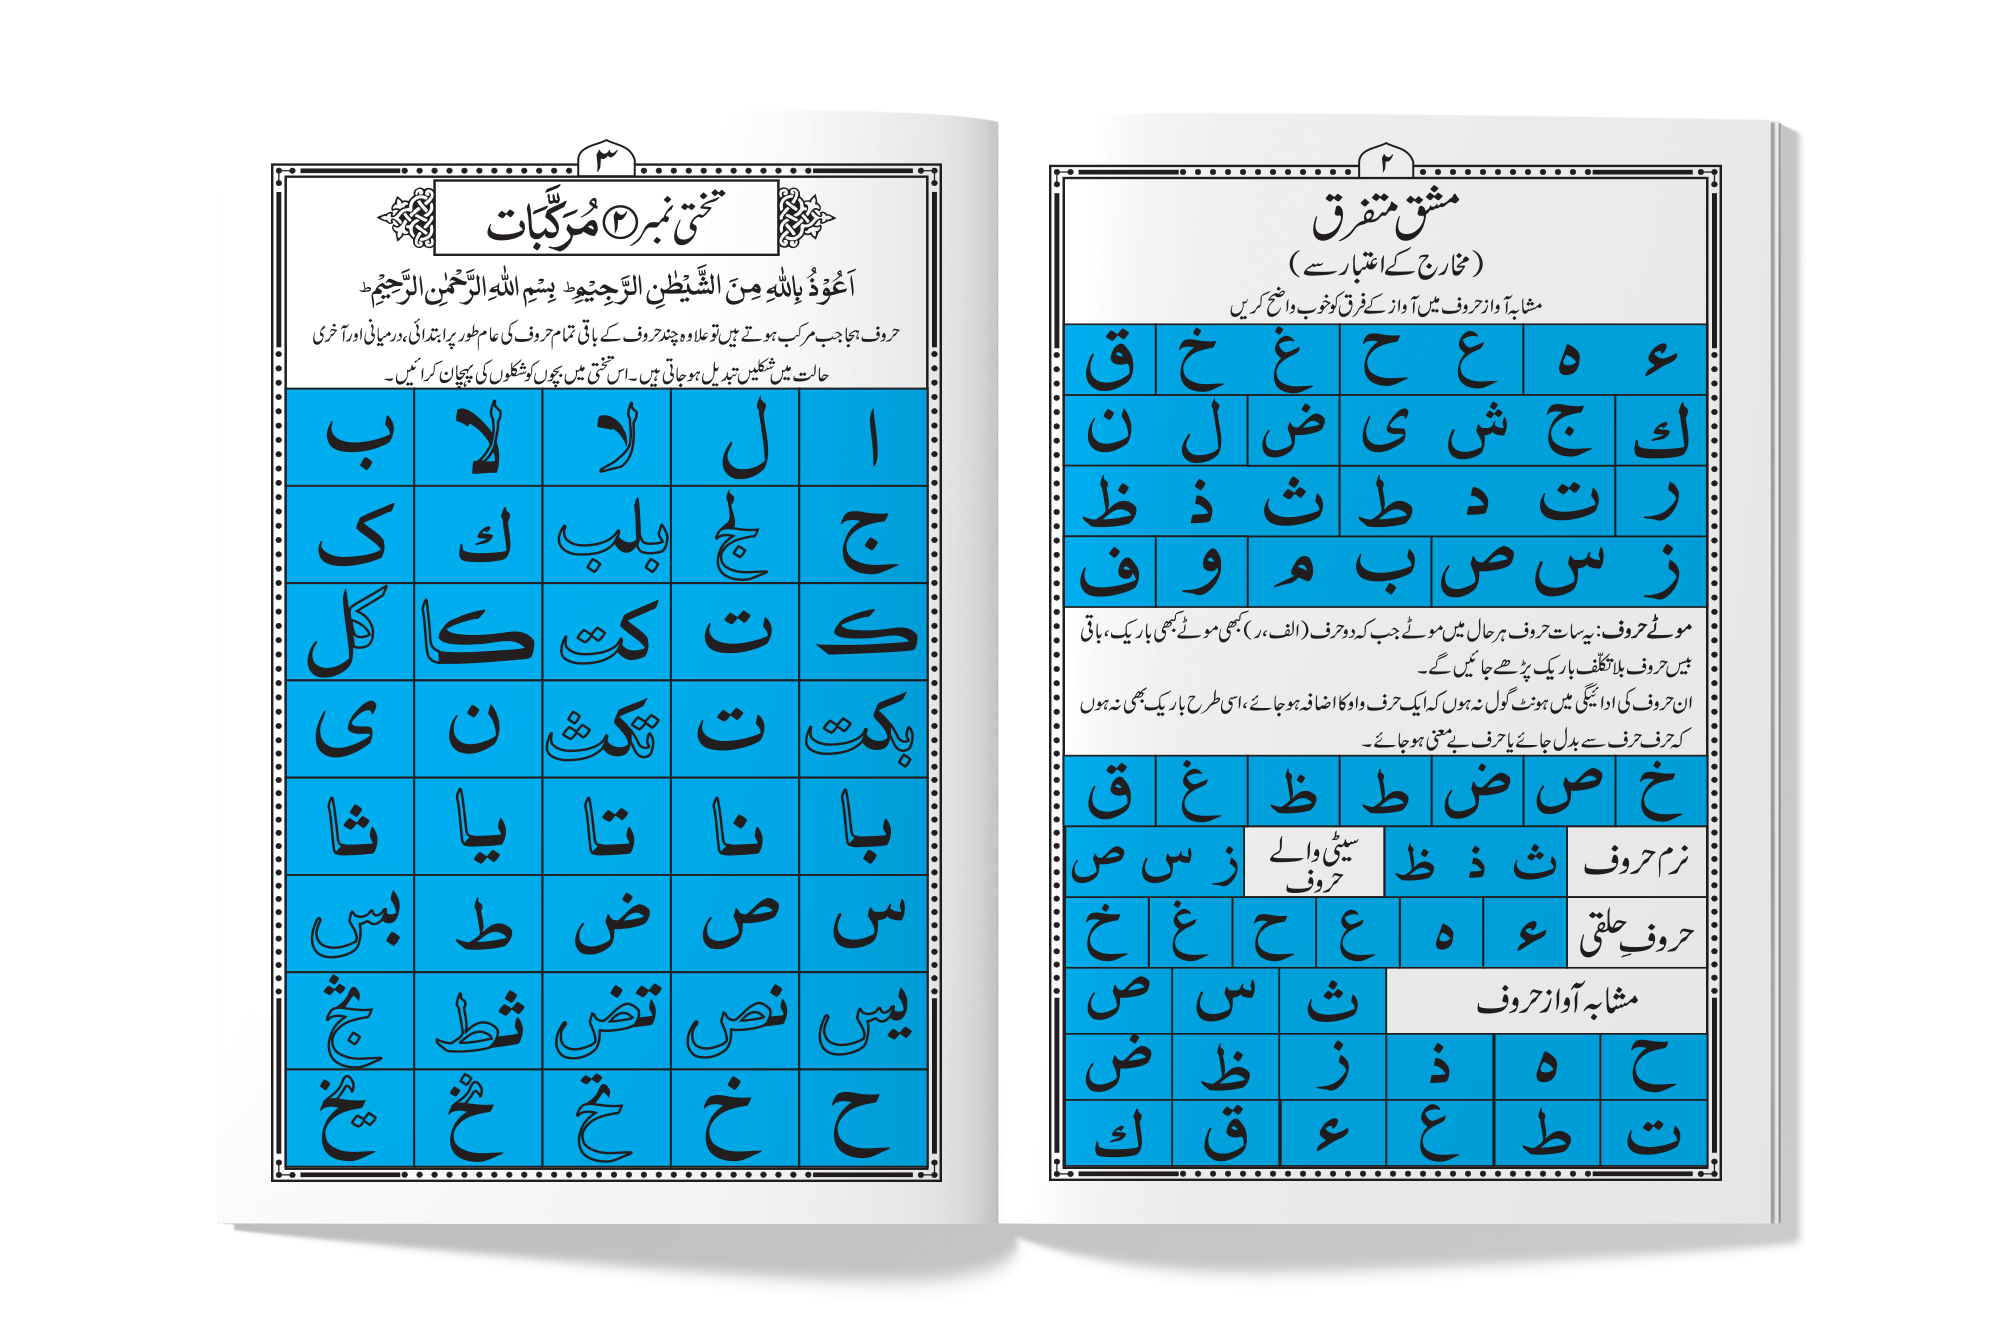 ٢
مشق متفرق
(مخارج کے اعتبار سے)
مشابہ آواز حروف میں آواز کے فرق کو خوب واضح کریں
ء ہ ع ح غ خ ق
ك ج ش ی ض ل ن
ر ت د ط ث ذ ظ
ز س ص ب م و ف
موٹے حروف: یہ سات حروف ہر حال میں موٹے جب کہ دو حرف (الف، ر) کبھی موٹے کبھی باریک، باقی
بیس حروف بلا تکلّف باریک پڑھے جائیں گے۔
ان حروف کی ادائیگی میں ہونٹ گول نہ ہوں کہ ایک حرف واو کا اضافہ ہو جائے، اسی طرح باریک بھی نہ ہوں
کہ حرف حرف سے بدل جائے یا حرف بے معنی ہو جائے۔
خ ص ض ط ظ غ ق
نرم حروف ث ذ ظ سیٹی والے حروف ز س ص
حروفِ حلقی ء ہ ع ح غ خ
مشابہ آواز حروف ث س ص
ح ہ ذ ز ظ ض
ت ط ع ء ق ك
٣
تختی نمبر ٢ مُرَکَّبَات
اَعُوْذُ بِاللّٰهِ مِنَ الشَّيْطٰنِ الرَّجِيْمِ ؕ بِسْمِ اللّٰهِ الرَّحْمٰنِ الرَّحِيْمِ ؕ
حروف ہجا جب مرکب ہوتے ہیں تو علاوہ چند حروف کے باقی تمام حروف کی عام طور پر ابتدائی، درمیانی اور آخری
حالت میں شکلیں تبدیل ہو جاتی ہیں۔ اس تختی میں بچوں کو شکلوں کی پہچان کرائیں۔
ا ل لا لا ب
ج لج بلب ك ک
ڪ ت کت كا كل
بكت ت تكث ن ی
با نا تا یا ثا
س ص ض ط بس
یس نص تض ثط بج
ح خ تح نخ یخ